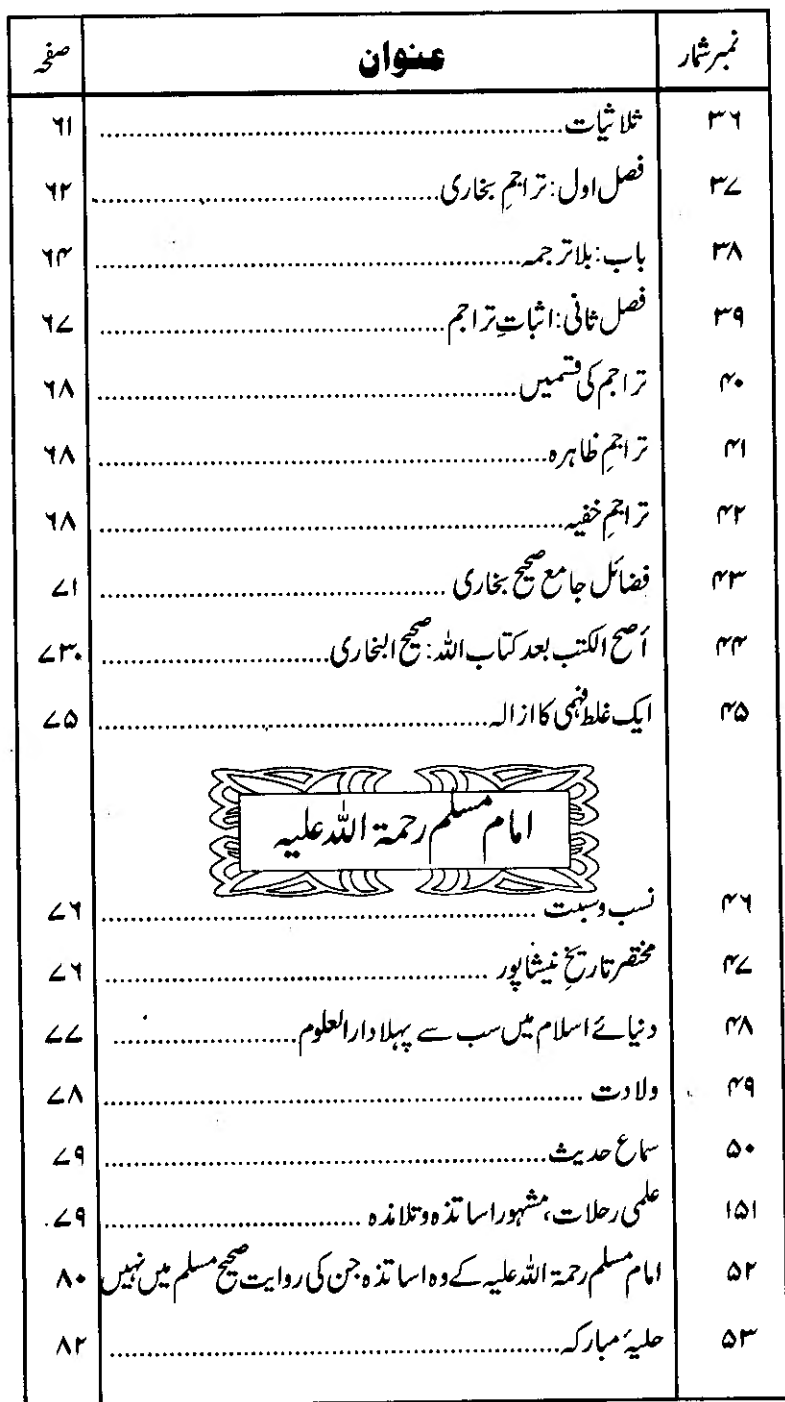 نمبرشمار عنوان صفحہ
۳۶ ثلاثیات ۶۱
۳۷ فصل اول: تراجمِ بخاری ۶۲
۳۸ باب: بلاترجمہ ۶۴
۳۹ فصل ثانی: اثباتِ تراجم ۶۷
۴۰ تراجم کی قسمیں ۶۸
۴۱ تراجمِ ظاہرہ ۶۸
۴۲ تراجمِ خفیہ ۶۸
۴۳ فضائل جامع صحیح بخاری ۷۱
۴۴ أصح الکتب بعد کتاب اللہ: صحیح البخاری ۷۳
۴۵ ایک غلط فہمی کا ازالہ ۷۵
امام مسلم رحمۃ اللہ علیہ
۴۶ نسب وسبت ۷۶
۴۷ مختصر تاریخِ نیشاپور ۷۶
۴۸ دنیائے اسلام میں سب سے پہلا دارالعلوم ۷۷
۴۹ ولادت ۷۸
۵۰ سماع حدیث ۷۹
۱۵۱ علمی رحلات، مشہور اساتذہ وتلامذہ ۷۹
۵۲ امام مسلم رحمۃ اللہ علیہ کے وہ اساتذہ جن کی روایت صحیح مسلم میں نہیں ۸۰
۵۳ حلیۂ مبارکہ ۸۲